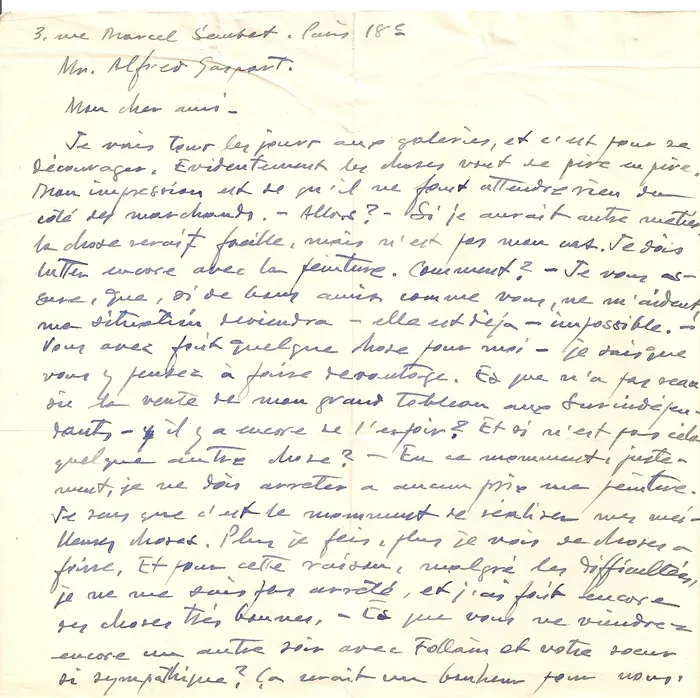 3, rue Marcel Sembat. Paris 18e
Mr. Alfred Gaspart.
Mon cher ami -
Je vais tous les jours aux galeries, et c'est pour se
décourager. Evidentement les choses vont de pire en pire.
Mon impression est de qu'il ne faut attendre rien du
coté des marchands. - Allors? - Si je aurait autre métier
la chose serait facille, mais n'est pas mon cas. Je dois
lutter encore avec la peinture. Comment? - Je vous as-
sure, que, si de bons amis comme vous, ne m'aident,
ma situation deviendra - elle est déja - impossible. -
Vous avec fait quelque chose pour moi - je sais que
vous y pensez à faire davantage. Es que n'a pas
la vente de mon grand tableau aux Surindépen
dants - il y a encore de l'espoir? Et si n'est pas cela
quelque autre chose? - En ce momment, juste-
ment, je ne dois arreter a aucun prix ma peinture.
Je sens que c'est le momment de realiser mes mei-
lleures choses. Plus je fais, plus je vois de choses a
faire. Et pour cette raison, malgré les difficultées,
je ne me suis pas arrété, et j'ai fait encore
des choses très bonnes. - Es que vous ne viendrez
encore un autre soir avec Follain et votre soeur
si sympathique? Ça serait un bonheur pour nous.